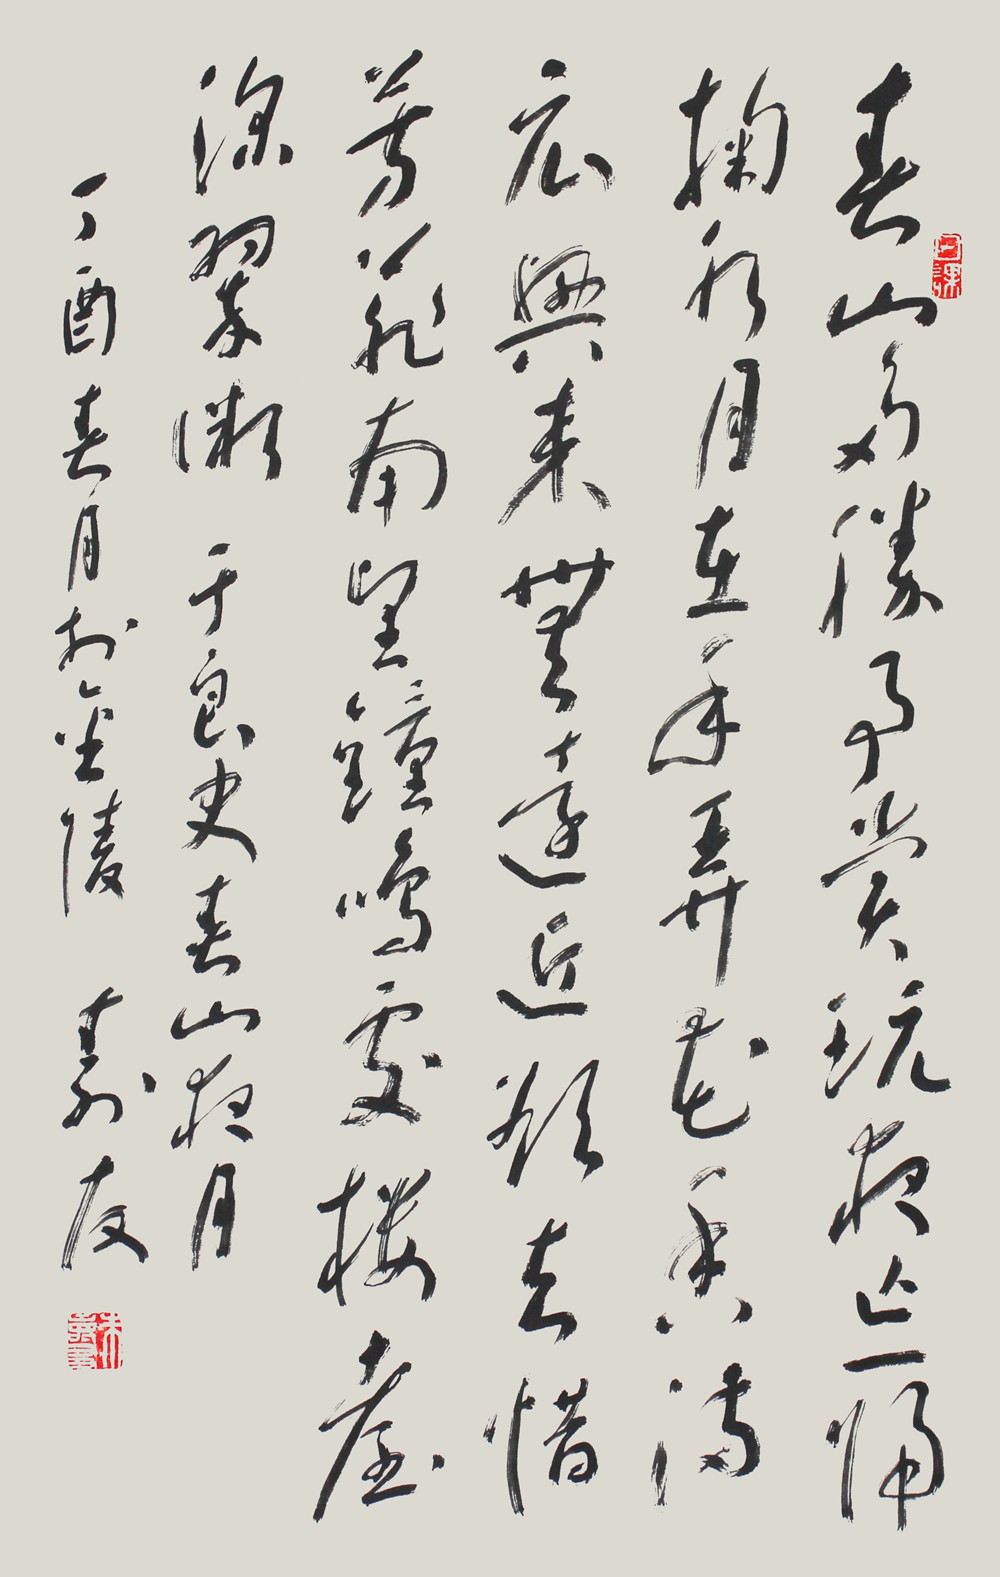 春山多勝事賞玩夜忘歸
掬水月在手弄花香滿
衣興來無遠近欲去惜
芳菲南望鐘鳴處樓臺
深翠微 于良史春山夜月
丁酉春月於金陵 壽友